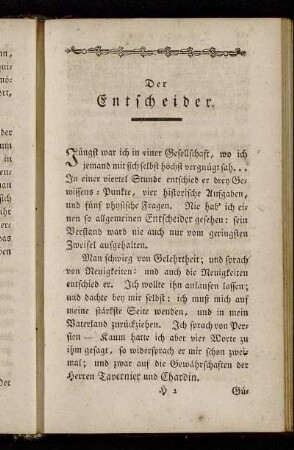 Der
Entscheider.
Jüngst war ich in einer Gesellschaft, wo ich
jemand mit sich selbst höchst vergnügt sah...
In einer viertel Stunde entschied er drey Ge-
wissens-Punkte, vier historische Aufgaben,
und fünf physische Fragen. Nie hab' ich ei-
nen so allgemeinen Entscheider gesehen: sein
Verstand ward nie auch nur vom geringsten
Zweifel aufgehalten.
Man schwieg von Gelehrtheit; und sprach
von Neuigkeiten: und auch die Neuigkeiten
entschied er. Ich wollte ihn anlaufen lassen;
und dachte bey mir selbst: ich muß mich auf
meine stärkste Seite wenden, und in mein
Vaterland zurückziehen. Ich sprach von Per-
sien — Kaum hatte ich aber vier Worte zu
ihm gesagt, so widersprach er mir schon zwei-
mal; und zwar auf die Gewährschaften der
Herren Tavernier und Chardin.
H 2
Gü-
der
Der